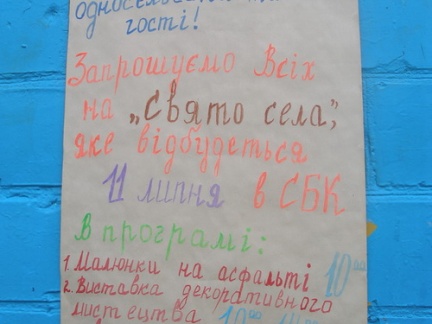 гості!
Запрошуємо Всіх
на „Свято села",
яке відбудеться
11 липня в СБК
В програмі:
1. Малюнки на асфальті 10⁰⁰
2. Виставка декоративного
мистецтва 10⁰⁰